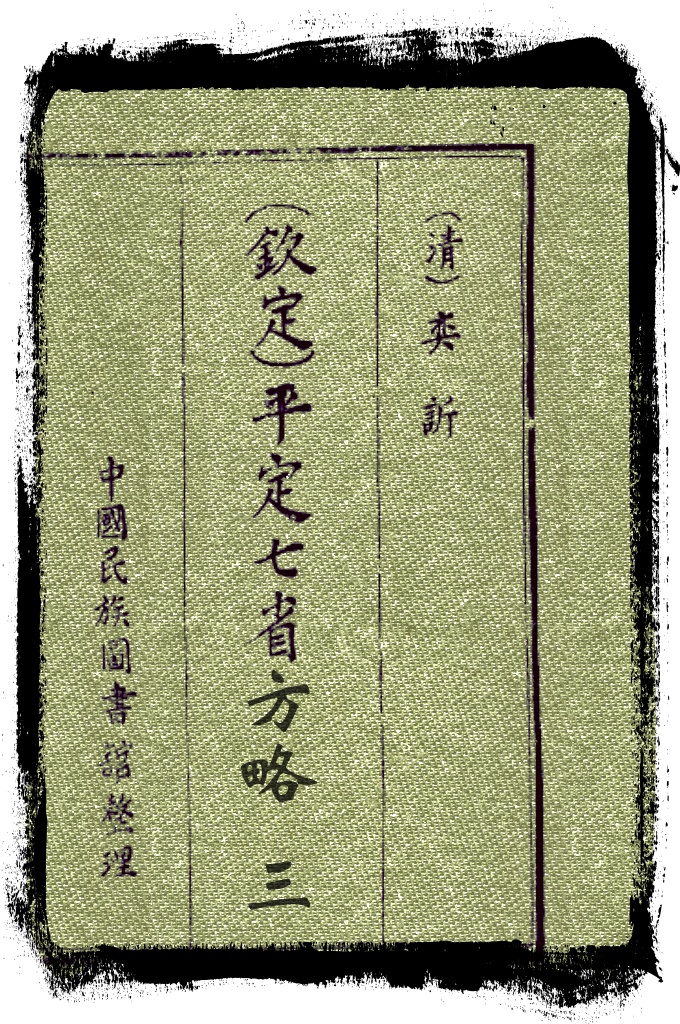 (清)奕訢
(欽定)平定七省方略 三
中國民族圖書館整理